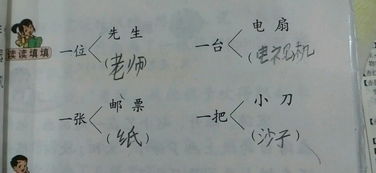 先生
一位
(老师)
读读填填
电扇
一台
(电视机)
邮票
一张
(纸)
小刀
一把
(沙子)